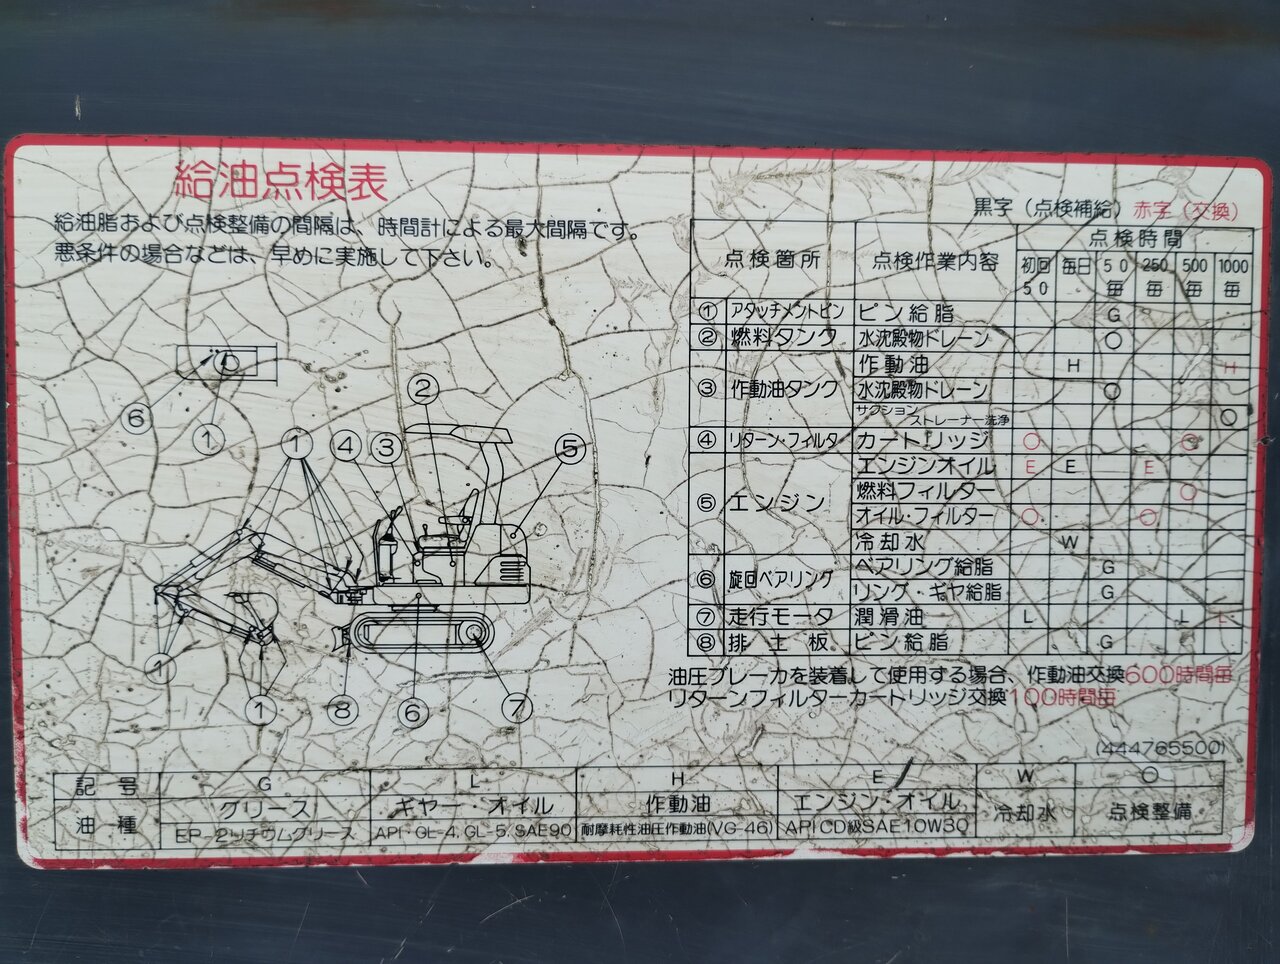 給油点検表
給油脂および点検整備の間隔は、時間計による最大間隔です。
悪条件の場合などは、早めに実施して下さい。
黒字（点検補給）赤字（交換）
点検箇所 点検作業内容 点検時間
初回50 毎日 50毎 250毎 500毎 1000毎
① アタッチメントピン ピン給脂 G
② 燃料タンク 水沈殿物ドレーン ○
③ 作動油タンク 作動油 H H
水沈殿物ドレーン ○
サクションストレーナー洗浄 ○
④ リターン・フィルタ カートリッジ ○ ○
⑤ エンジン エンジンオイル E E E
燃料フィルター ○
オイル・フィルター ○ ○
冷却水 W
⑥ 旋回ベアリング ベアリング給脂 G
リング・ギヤ給脂 G
⑦ 走行モータ 潤滑油 L L L
⑧ 排土板 ピン給脂 G
油圧ブレーカを装着して使用する場合、作動油交換600時間毎
リターンフィルターカートリッジ交換100時間毎
(444765500)
⑥ ① ① ④ ③ ② ⑤
① ① ⑧ ⑥ ⑦
記号 G L H E W ○
油種 グリース ギヤー・オイル 作動油 エンジン・オイル 冷却水 点検整備
EP-2リチウムグリース API・GL-4,GL-5,SAE90 耐摩耗性油圧作動油(VG-46) API CD級SAE10W30